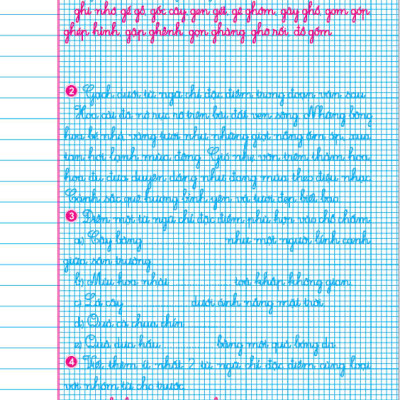 ghi nhớ gế gỗ, gốc cây, gen gét, gê ghớm, gây ghổ, gom góp
ghép hình, gập ghềnh, gọn ghàng, ghã rối, đồ gốm
2 Gạch dưới từ ngữ chỉ đặc điểm trong đoạn văn sau
Hoa cải đã nở rực rỡ trên bãi đất ven sông. Những bông
hoa bé nhỏ vàng tươi như những giọt nắng ấm áp, xua
tan hơi lạnh mùa đông. Gió nhẹ vờn trên thảm hoa,
hoa đu đưa duyên dáng như đang múa theo điệu nhạc.
Cảnh sắc quê hương bình yên và tươi đẹp biết bao.
3 Điền một từ ngữ chỉ đặc điểm phù hợp vào chỗ chấm
a) Cây bàng như một người lính canh
giữa sân trường
b) Mùi hoa nhài toả khắp không gian
c) Lá cây dưới ánh nắng mặt trời
d) Quả cà chua chín
e) Quả dưa hấu bằng một quả bóng da
4 Viết thêm ít nhất 2 từ ngữ chỉ đặc điểm cùng loại
với nhóm từ cho trước